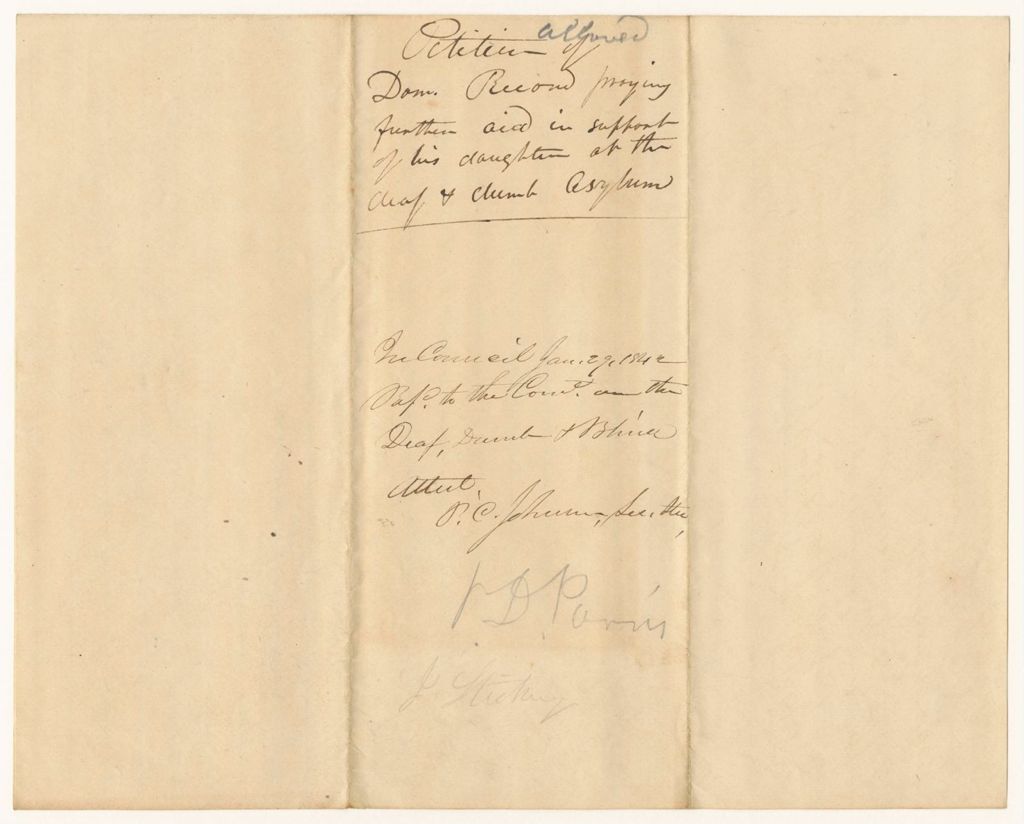 allowed
Petition of
Dom. Record praying
further aid in support
of his daughter at the
deaf & dumb Asylum
In Council Jan. 29, 1842
to the Come. on the
Deaf, Dumb & Blind
Attest,
P. C. Johnson, Sec. State
V. D. Parris